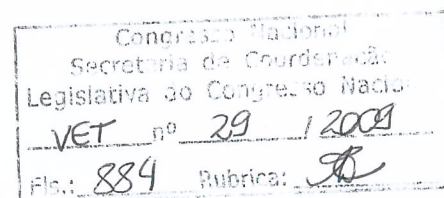 Congresso Nacional
Secretaria de Coordenação
Legislativa do Congresso Nacio
VET nº 29 / 2009
Fls.: 884 Rubrica: